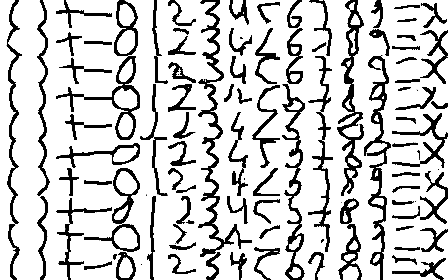 ( ) + - 0 1 2 3 4 5 6 7 8 9 = ×
( ) + - 0 1 2 3 4 5 6 7 8 9 = ×
( ) + - 0 1 2 3 4 5 6 7 8 9 = ×
( ) + - 0 1 2 3 4 5 6 7 8 9 = ×
( ) + - 0 1 2 3 4 5 6 7 8 9 = ×
( ) + - 0 1 2 3 4 5 6 7 8 9 = ×
( ) + - 0 1 2 3 4 5 6 7 8 9 = ×
( ) + - 0 1 2 3 4 5 6 7 8 9 = ×
( ) + - 0 1 2 3 4 5 6 7 8 9 = ×
( ) + - 0 1 2 3 4 5 6 7 8 9 = ×